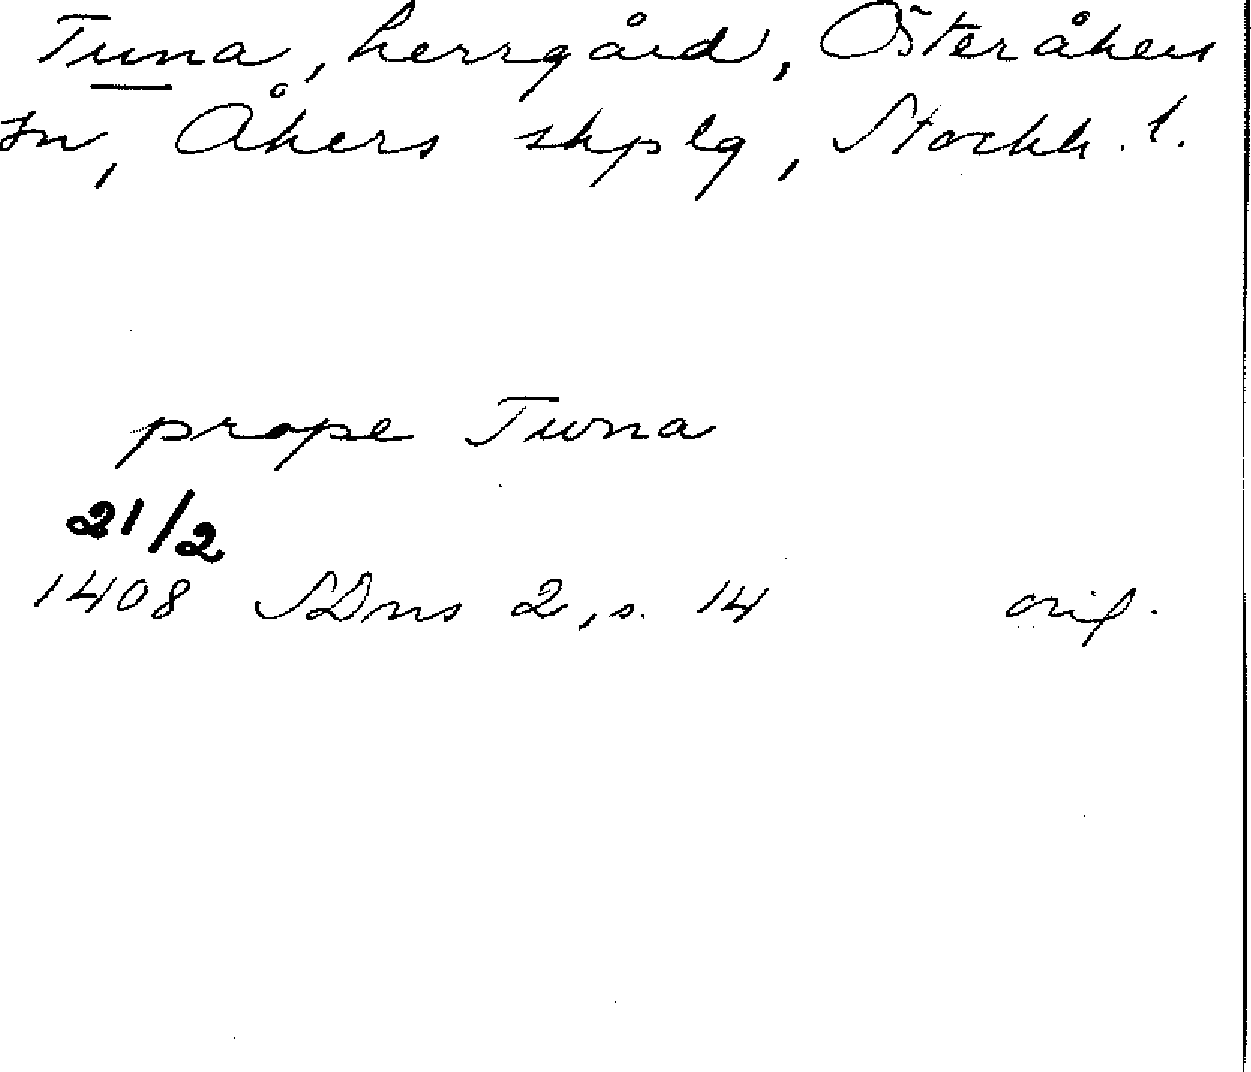 Tuna, herrgård, Österåkers
sn, Åkers skplg, Stockh. l.
prope Twna
21/2
1408 SDns 2, s. 14 orig.